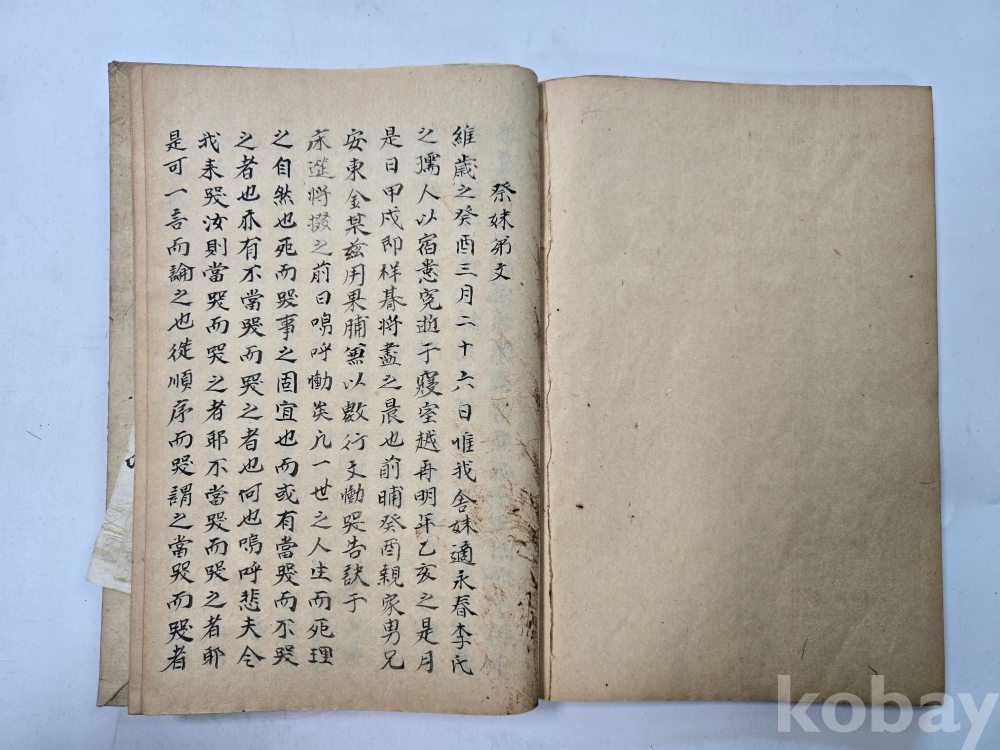 祭妹弟文
維歲之癸酉三月二十六日惟我舍妹適永春李氏
之孺人以宿恙宛逝于寢室越再明年乙亥之是月
是日甲戌即祥朞將盡之晨也前晡癸酉親家男兄
安東金某玆用果脯兼以數行文慟哭告訣于
床筵將掇之前曰嗚呼慟矣凡一世之人生而死理
之自然也死而哭事之固宜也而或有當哭而不哭
之者也亦有不當哭而哭之者也何也嗚呼悲夫今
我來哭汝則當哭而哭之者耶不當哭而哭之者耶
是可一言而論之也從順序而哭謂之當哭而哭者
kobay